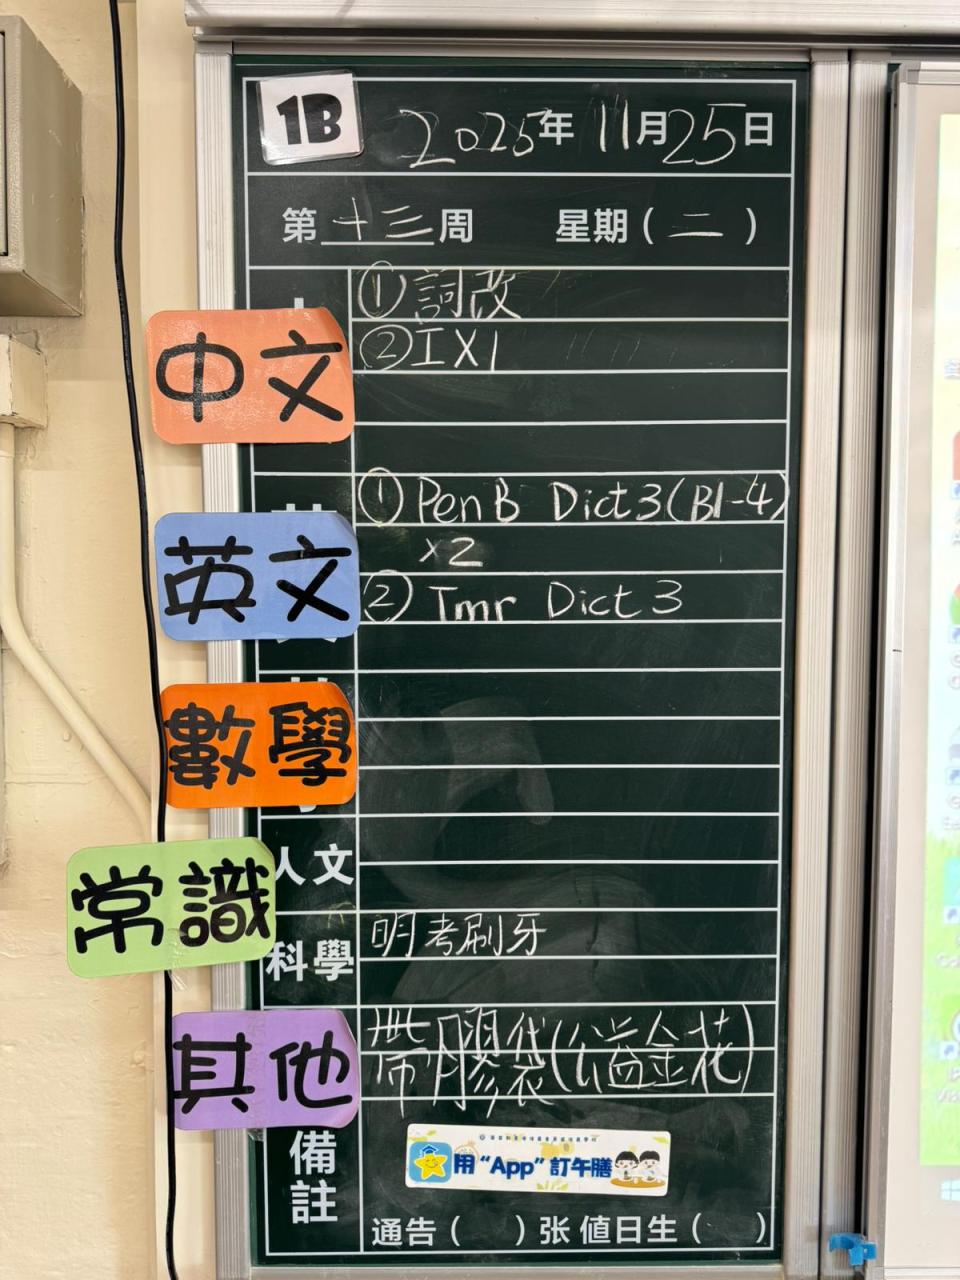 1B
2025年 11月25日
第 十三 周 星期 ( 二 )
中文
① 詞改
② IX1
英文
① Pen B Dict 3 (B1-4)
x2
② Tmr Dict 3
數學
人文
常識
科學
明考刷牙
其他
帶膠袋(公益金花)
備註
用 “App” 訂午膳
通告 ( ) 张 值日生 ( )